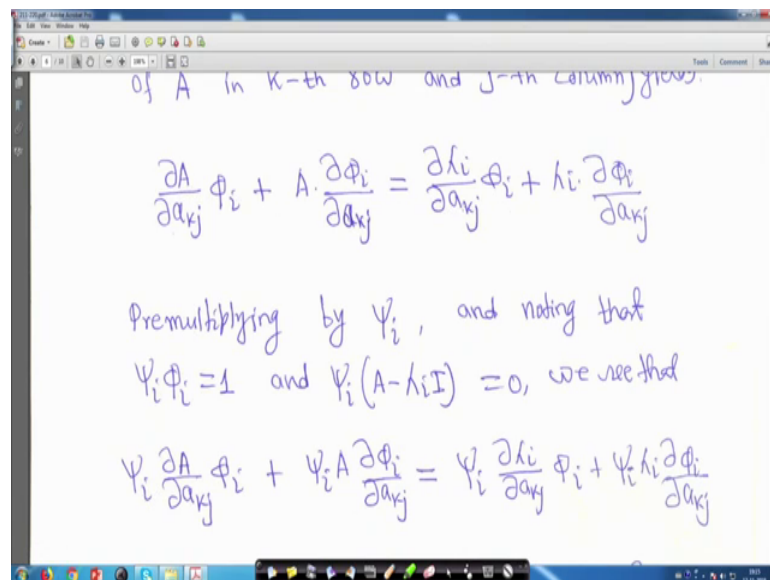 211-220.pdf - Adobe Acrobat Pro
File Edit View Window Help
Create
Tools Comment Share
of A in K-th row and j-th column) yields.
∂A/∂aₖⱼ Φᵢ + A · ∂Φᵢ/∂aₖⱼ = ∂λᵢ/∂aₖⱼ Φᵢ + λᵢ · ∂Φᵢ/∂aₖⱼ
Premultiplying by Ψᵢ, and noting that
ΨᵢΦᵢ = 1 and Ψᵢ(A - λᵢI) = 0, we see that
Ψᵢ ∂A/∂aₖⱼ Φᵢ + ΨᵢA ∂Φᵢ/∂aₖⱼ = Ψᵢ ∂λᵢ/∂aₖⱼ Φᵢ + Ψᵢ λᵢ ∂Φᵢ/∂aₖⱼ